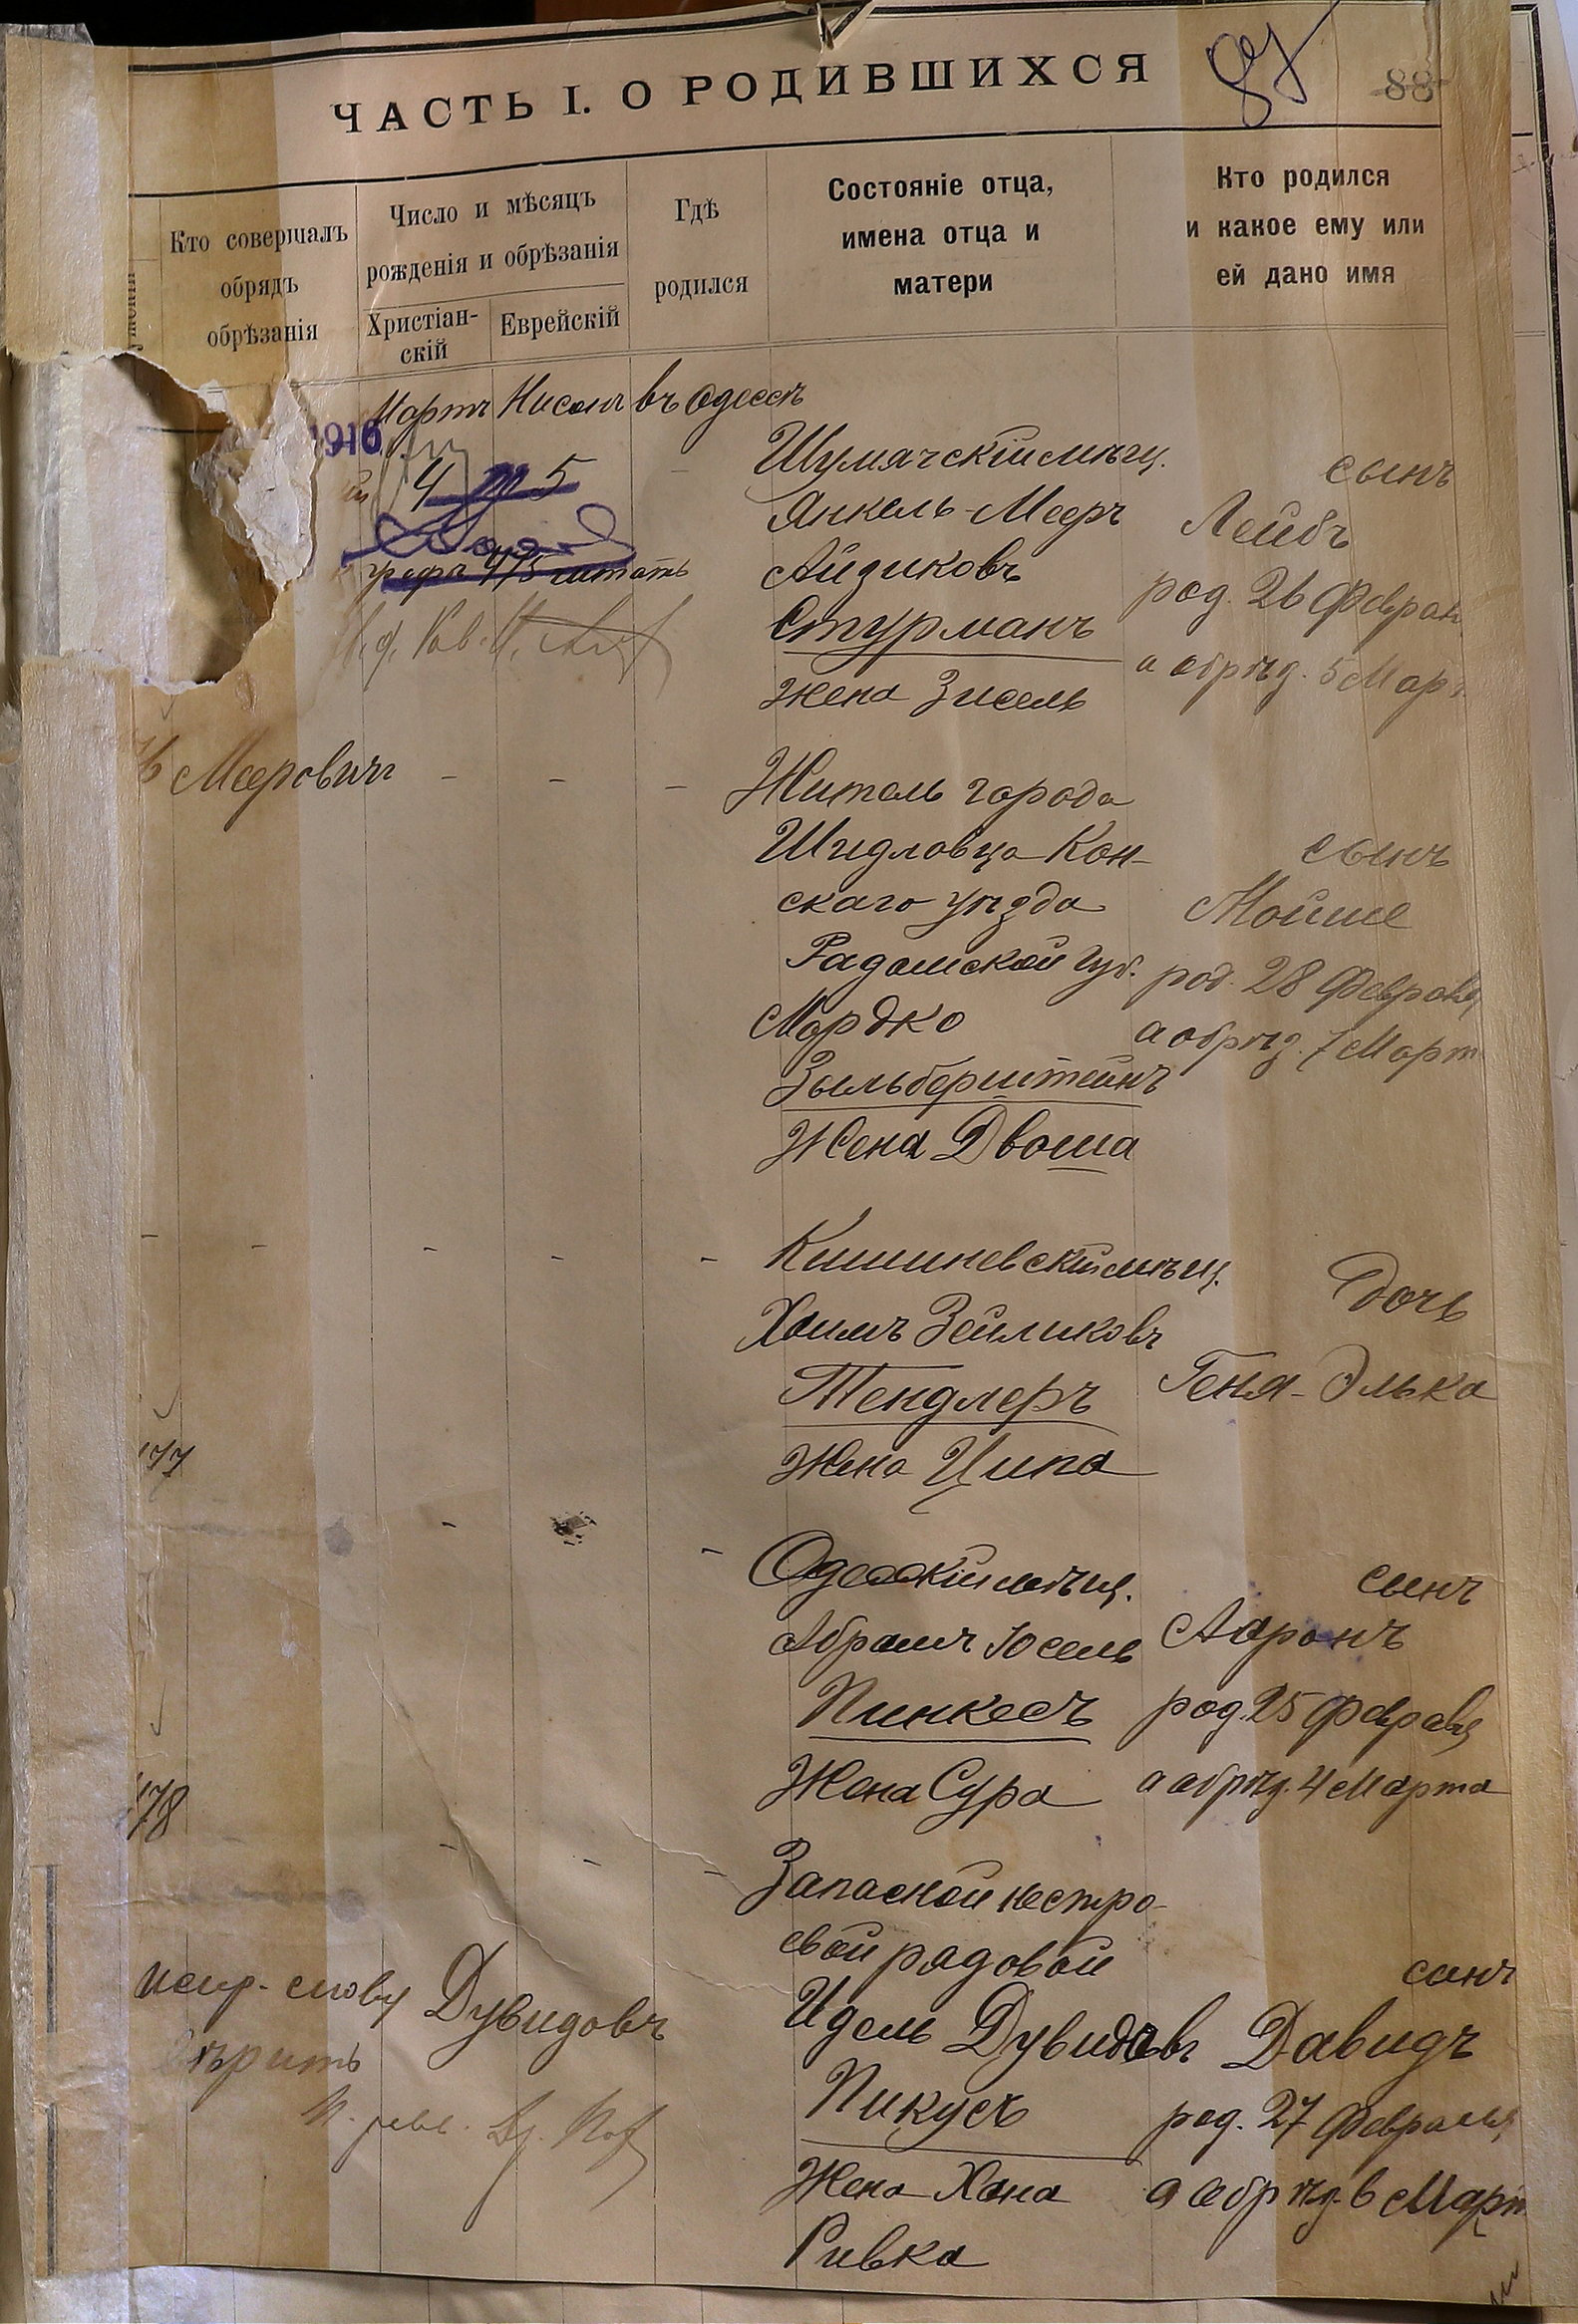 ЧАСТЬ I. О РОДИВШИХСЯ
87
88
Кто совершалъ
обрядъ
обрѣзанія
Число и мѣсяцъ
рожденія и обрѣзанія
Христіан-
скій
Еврейскій
Гдѣ
родился
Состояніе отца,
имена отца и
матери
Кто родился
и какое ему или
ей дано имя
Мартъ Нисанъ въ Одессѣ
1916
4 5
графа 4/5 читать
Шумячскій мѣщ.
Янкель-Мееръ
Айзиковъ
Стурманъ
жена Зисель
сынъ
Лейбъ
род. 26 Феврал
а обрѣз. 5 Мар
Мееровичъ - - -
Житель города
Шидловца Кон-
скаго уѣзда
Радомской губ.
Мордко
Зыльберштейнъ
Жена Двоша
сынъ
Мойше
род. 28 Февраля
а обрѣз. 7 Март
- - - - -
Кишиневскій мѣщ.
Хаимъ Зейликовъ
Тендлеръ
Жена Ципа
дочь
Геня-Элька
177
- -
Одесскій мѣщ.
Абрамъ Юсель
Пинкесъ
Жена Сура
сынъ
Ааронъ
род. 25 Февраля
а обрѣз. 4 Марта
178
- - -
Запасной нестро-
евой рядовой
Идель Дувидовъ
Пикусъ
Жена Хана
Ривка
сынъ
Давидъ
род. 27 Февраля
а обрѣз. 6 Март
испр. слову Дувидовъ
вѣрить